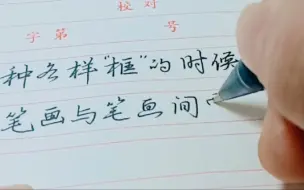 校对
字第 号
种各样“框”的时候
笔画与笔画间